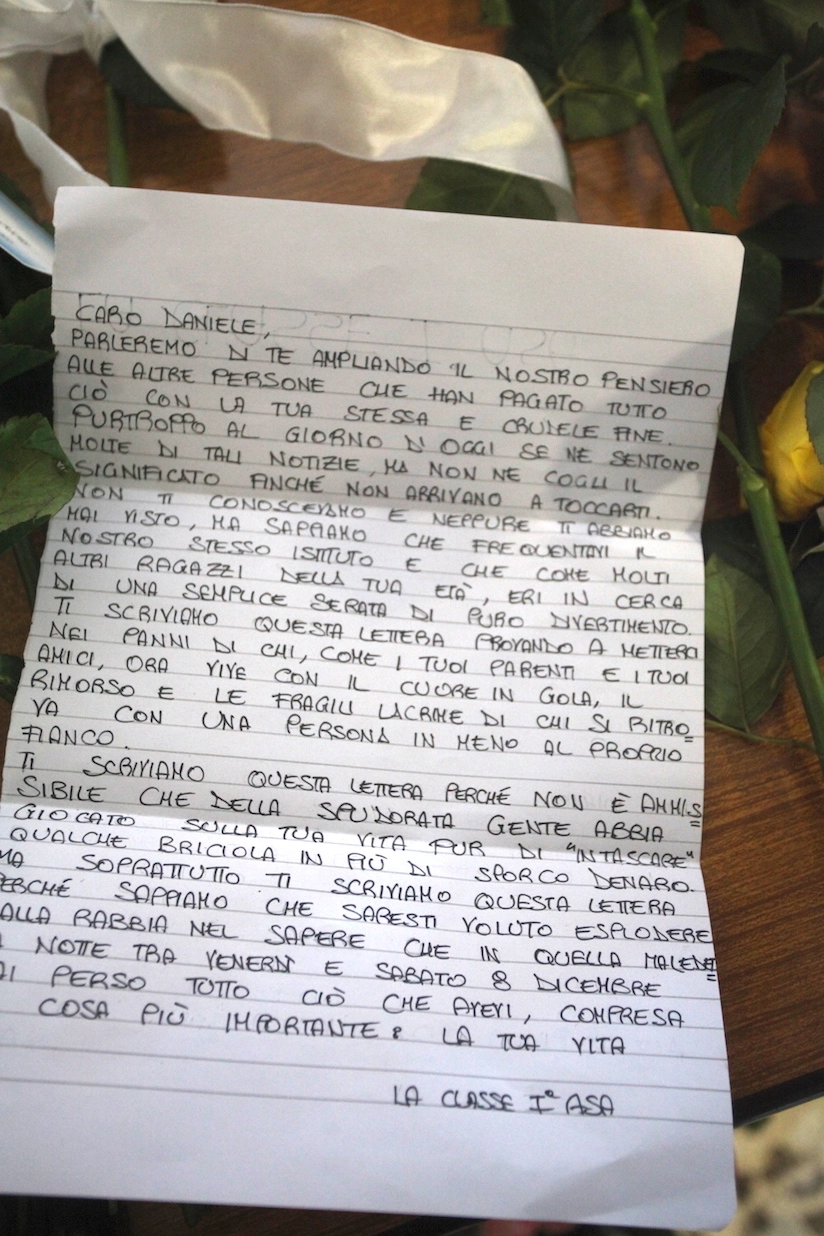 CARO DANIELE,
PARLEREMO DI TE AMPLIANDO IL NOSTRO PENSIERO
ALLE ALTRE PERSONE CHE HAN PAGATO TUTTO
CIÒ CON LA TUA STESSA E CRUDELE FINE.
PURTROPPO AL GIORNO D'OGGI SE NE SENTONO
MOLTE DI TALI NOTIZIE, MA NON NE COGLI IL
SIGNIFICATO FINCHÉ NON ARRIVANO A TOCCARTI.
NON TI CONOSCEVAMO E NEPPURE TI ABBIAMO
MAI VISTO, MA SAPPIAMO CHE FREQUENTAVI IL
NOSTRO STESSO ISTITUTO E CHE COME MOLTI
ALTRI RAGAZZI DELLA TUA ETÀ, ERI IN CERCA
DI UNA SEMPLICE SERATA DI PURO DIVERTIMENTO.
TI SCRIVIAMO QUESTA LETTERA PROVANDO A METTERCI
NEI PANNI DI CHI, COME I TUOI PARENTI E I TUOI
AMICI, ORA VIVE CON IL CUORE IN GOLA, IL
RIMORSO E LE FRAGILI LACRIME DI CHI SI RITRO=
VA CON UNA PERSONA IN MENO AL PROPRIO
FIANCO.
TI SCRIVIAMO QUESTA LETTERA PERCHÉ NON È AMMIS=
SIBILE CHE DELLA SPUDORATA GENTE ABBIA
GIOCATO SULLA TUA VITA PUR DI "INTASCARE"
QUALCHE BRICIOLA IN PIÙ DI SPORCO DENARO.
MA SOPRATTUTTO TI SCRIVIAMO QUESTA LETTERA
PERCHÉ SAPPIAMO CHE SARESTI VOLUTO ESPLODERE
ALLA RABBIA NEL SAPERE CHE IN QUELLA MALEDET=
NOTTE TRA VENERDÌ E SABATO 8 DICEMBRE
AI PERSO TUTTO CIÒ CHE AVEVI, COMPRESA
COSA PIÙ IMPORTANTE: LA TUA VITA
LA CLASSE I° ASA